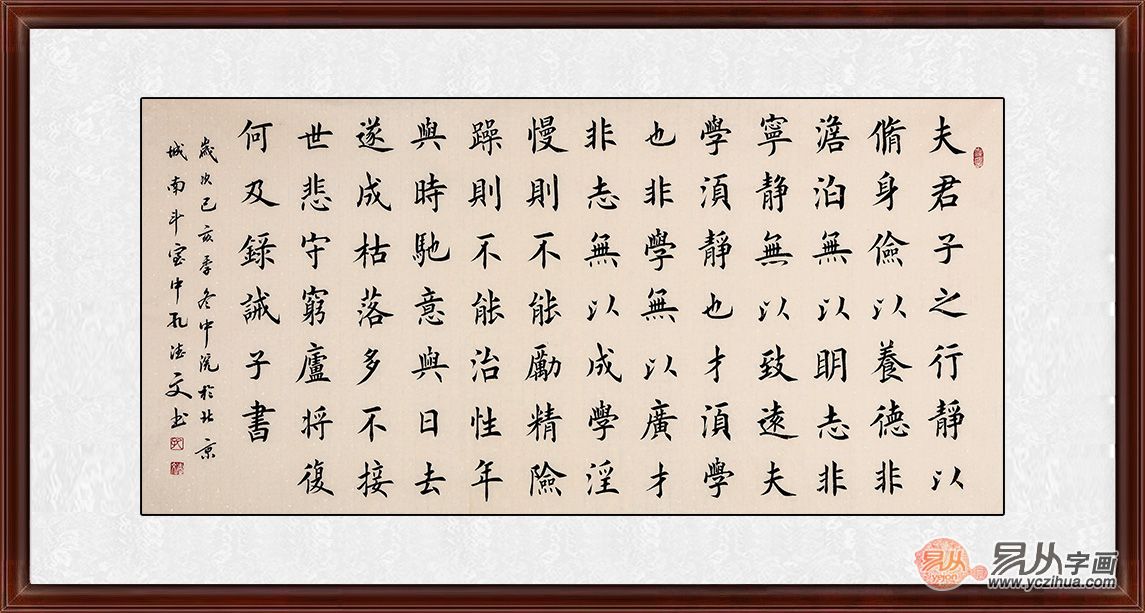 夫君子之行靜以
脩身儉以養德非
澹泊無以明志非
寧靜無以致遠夫
學須靜也才須學
也非學無以廣才
非志無以成學淫
慢則不能勵精險
躁則不能治性年
與時馳意與日去
遂成枯落多不接
世悲守窮廬將復
何及錄誡子書
歲次己亥季冬中浣於北京
城南斗室中孔德文书
易从
yzcn
易从字画
www.yczihua.com